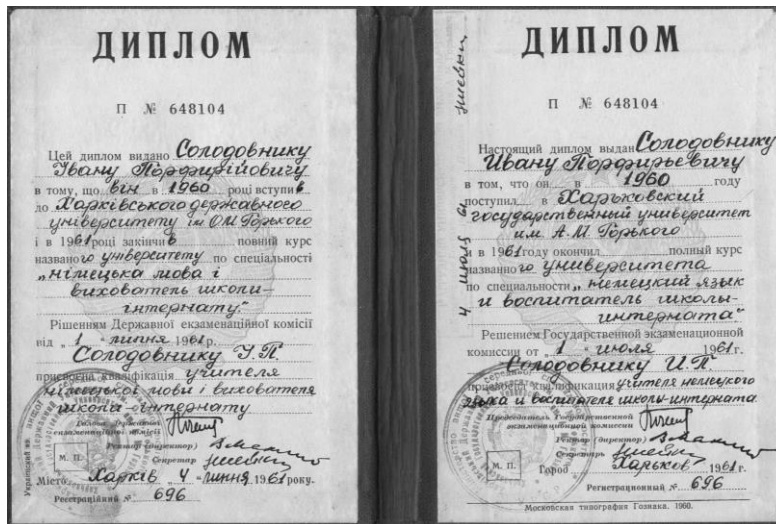 ДИПЛОМ
П № 648104
Цей диплом видано Солодовнику
Івану Порфирійовичу
в тому, що він в 1960 році вступив
до Харківського державного
університету ім. О.М. Горького
і в 1961 році закінчив повний курс
названого університету по спеціальності
„німецька мова і
вихователь школи-
інтернату."
Рішенням Державної екзаменаційної комісії
від „1" липня 1961р.
Солодовнику І.П.
присвоєна кваліфікація учителя
німецької мови і вихователя
школи-інтернату
Голова Державної
екзаменаційної комісії
Ректор (директор)
Секретар
М. П.
Місто Харків „4" липня 1961 року.
Реєстраційний № 696
ДИПЛОМ
П № 648104
Настоящий диплом выдан Солодовнику
Ивану Порфирьевичу
в том, что он в 1960 году
поступил в Харьковский
государственный университет
им. А.М. Горького
и в 1961 году окончил полный курс
названного университета
по специальности „немецкий язык
и воспитатель школы-
интерната."
Решением Государственной экзаменационной
комиссии от „1" июля 1961г.
Солодовнику И.П.
присвоена квалификация учителя немецкого
языка и воспитателя школы-интерната
Председатель Государственной
экзаменационной комиссии
Ректор (директор)
Секретарь
М. П.
Город Харьков 1961г.
4 июля 61
Регистрационный № 696
Московская типография Гознака. 1960.